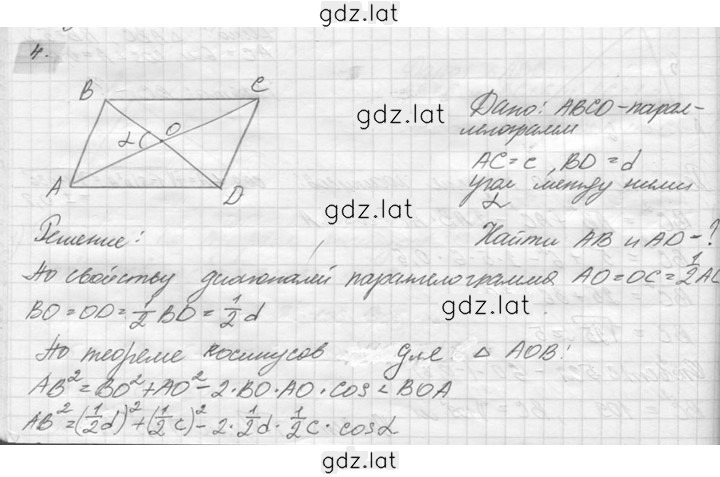 gdz.lat
4.
B C
gdz.lat
Дано: ABCD - парал-
лелограмм
α O
AC = c, BD = d
A D
угол между ними
α
gdz.lat
Решение:
Найти AB и AD - ?
По свойству диагоналей параллелограмма AO = OC = 1/2 AC
BO = OD = 1/2 BD = 1/2 d
gdz.lat
По теореме косинусов для △ AOB:
AB² = BO² + AO² - 2·BO·AO·cos∠BOA
AB² = (1/2 d)² + (1/2 c)² - 2·1/2 d·1/2 c·cosα
gdz.lat